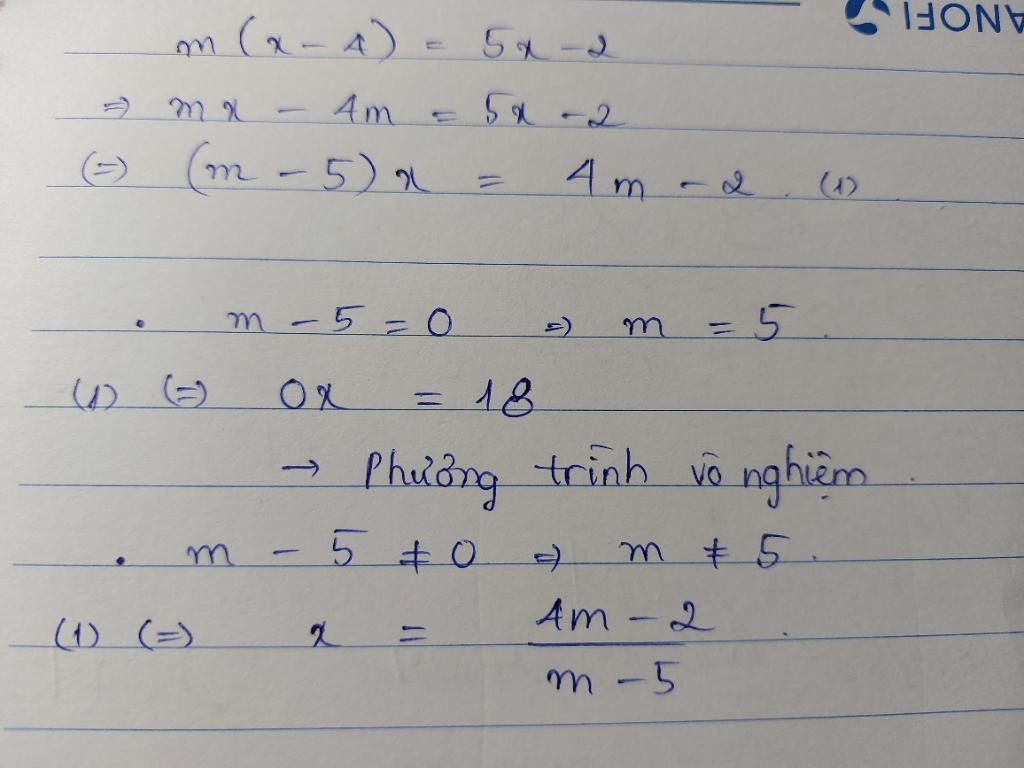 ANOFI
m(x-4) = 5x-2
⇒ mx - 4m = 5x -2
(=) (m-5)x = 4m-2. (1)
. m-5=0 ⇒ m = 5.
(1) (=) 0x = 18
→ Phương trình vô nghiệm.
. m - 5 ≠ 0 ⇒ m ≠ 5.
(1) (=) x = 4m-2
m-5